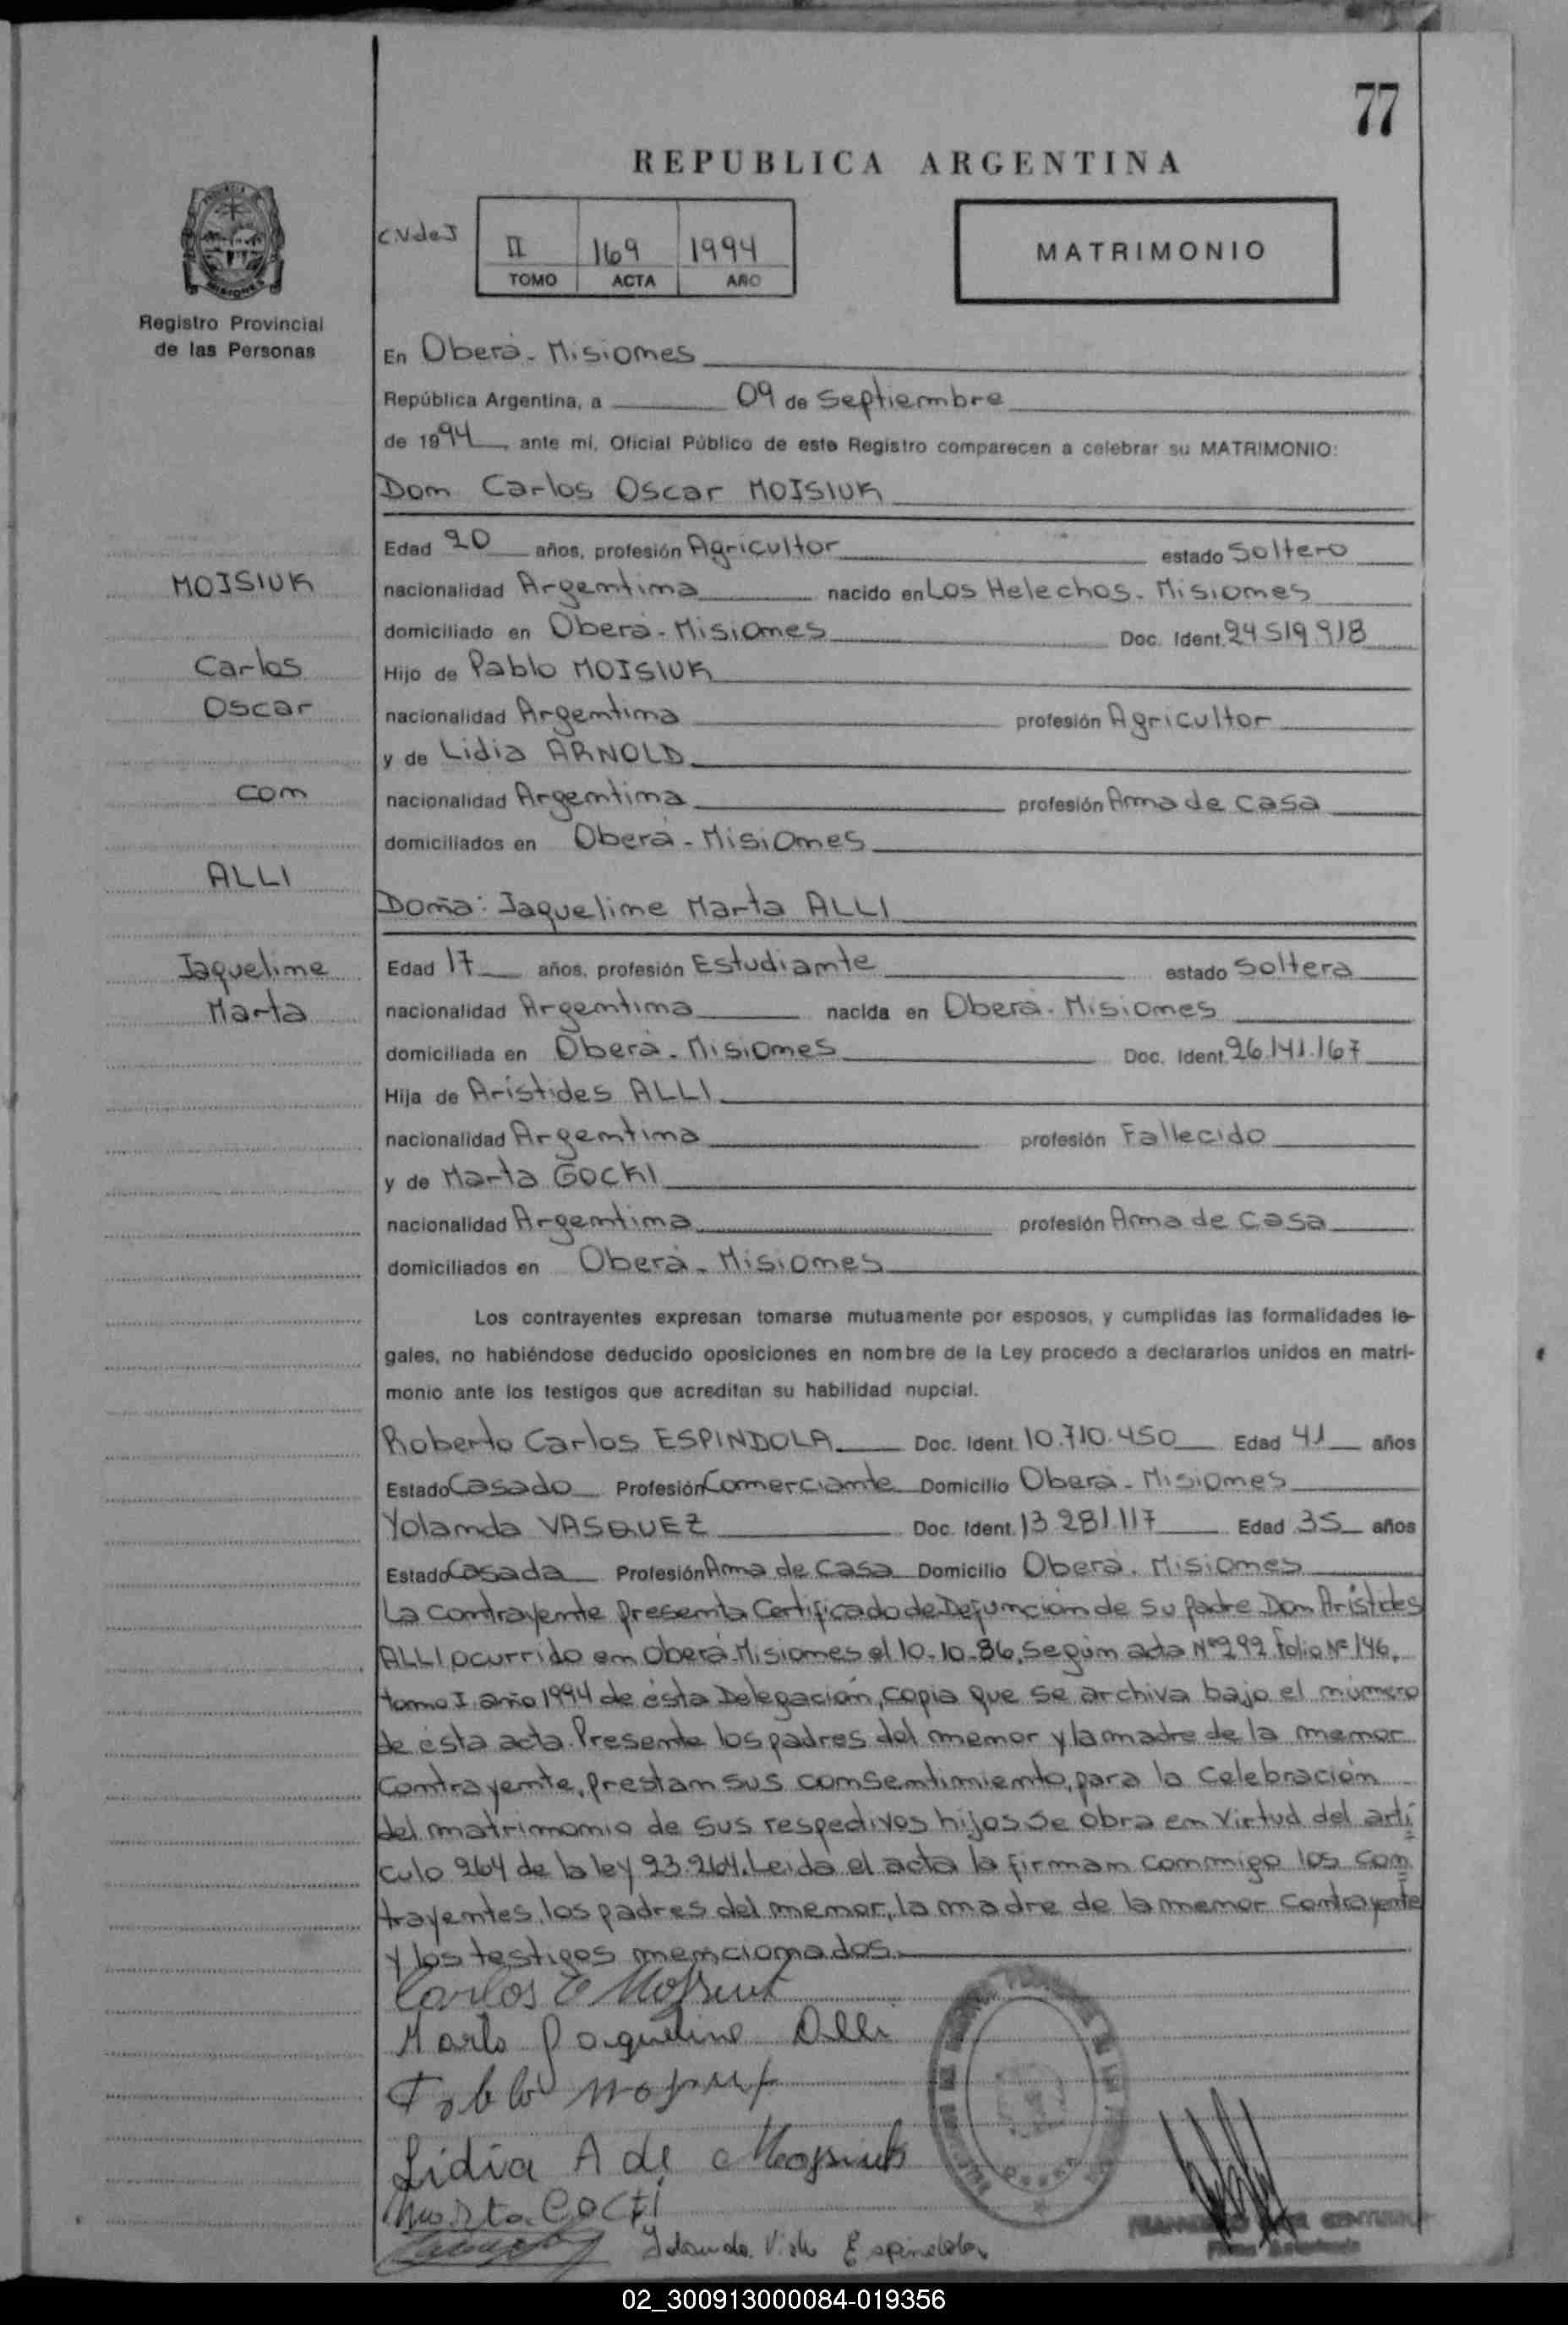 77
REPUBLICA ARGENTINA
C.V de J
II 169 1994
TOMO ACTA AÑO
MATRIMONIO
Registro Provincial
de las Personas
En Oberá - Misiones
República Argentina, a 09 de Septiembre
de 1994, ante mí, Oficial Público de este Registro comparecen a celebrar su MATRIMONIO:
Don Carlos Oscar MOJSIUK
Edad 20 años, profesión Agricultor estado Soltero
MOJSIUK
nacionalidad Argentina nacido en Los Helechos - Misiones
domiciliado en Oberá - Misiones Doc. Ident. 24.519.918
Carlos
Hijo de Pablo MOJSIUK
Oscar
nacionalidad Argentina profesión Agricultor
y de Lidia ARNOLD
con
nacionalidad Argentina profesión Ama de Casa
domiciliados en Oberá - Misiones
ALLI
Doña: Jaqueline Marta ALLI
Jaqueline
Edad 17 años, profesión Estudiante estado Soltera
Marta
nacionalidad Argentina nacida en Oberá - Misiones
domiciliada en Oberá - Misiones Doc. Ident. 26.141.167
Hija de Arístides ALLI
nacionalidad Argentina profesión Fallecido
y de Marta GOCKI
nacionalidad Argentina profesión Ama de Casa
domiciliados en Oberá - Misiones
Los contrayentes expresan tomarse mutuamente por esposos, y cumplidas las formalidades le-
gales, no habiéndose deducido oposiciones en nombre de la Ley procedo a declararlos unidos en matri-
monio ante los testigos que acreditan su habilidad nupcial.
Roberto Carlos ESPINDOLA Doc. Ident. 10.710.450 Edad 41 años
Estado Casado Profesión Comerciante Domicilio Oberá - Misiones
Yolanda VASQUEZ Doc. Ident. 13.281.117 Edad 35 años
Estado Casada Profesión Ama de Casa Domicilio Oberá - Misiones
La contrayente presenta Certificado de Defunción de su padre Don Arístides
ALLI ocurrido en Oberá - Misiones el 10-10-86, según acta Nº 292 folio Nº 146,
tomo I año 1994 de ésta Delegación, copia que se archiva bajo el número
de ésta acta. Presente los padres del menor y la madre de la menor
contrayente, prestan sus consentimiento, para la celebración
del matrimonio de sus respectivos hijos se obra en virtud del artí
culo 264 de la ley 23.264. Leída el acta la firman conmigo los con
trayentes, los padres del menor, la madre de la menor contrayente
y los testigos mencionados.
Carlos O Mojsiuk
Marta Jaqueline Alli
Pablo Mojsiuk
Lidia A de Mojsiuk
Marta GOCKI
Espindola
02_300913000084-019356